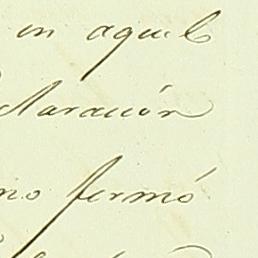 en aquel
claración
no firmó